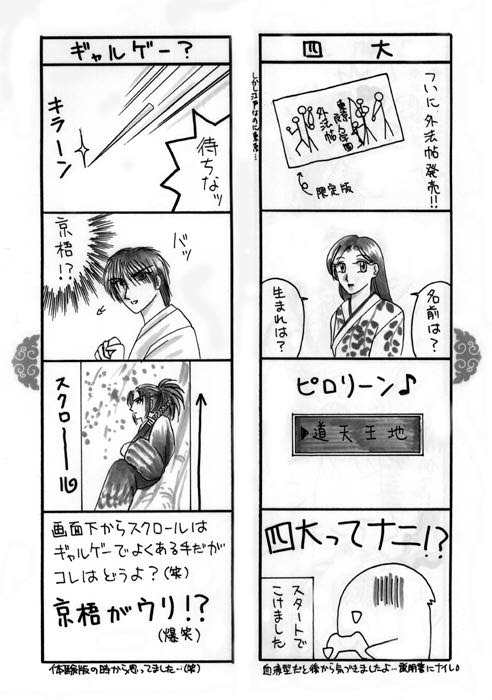 四大
ついに外法帖発売!!
東京魔人學園
外法帖
限定版
しかし江戸なのに東京…
名前は?
生まれは?
ピロリーン♪
▶道天王地
四大ってナニ!?
スタートで
こけました
血液型だと後から気づきましたよ…説明書にナイし。
ギャルゲー?
キラーン
待ちなッ
バッ
京梧!?
スクロール
画面下からスクロールは
ギャルゲーでよくある手だが
コレはどうよ?(笑)
京梧がウリ!?
(爆笑)
体験版の時から思ってました…(笑)